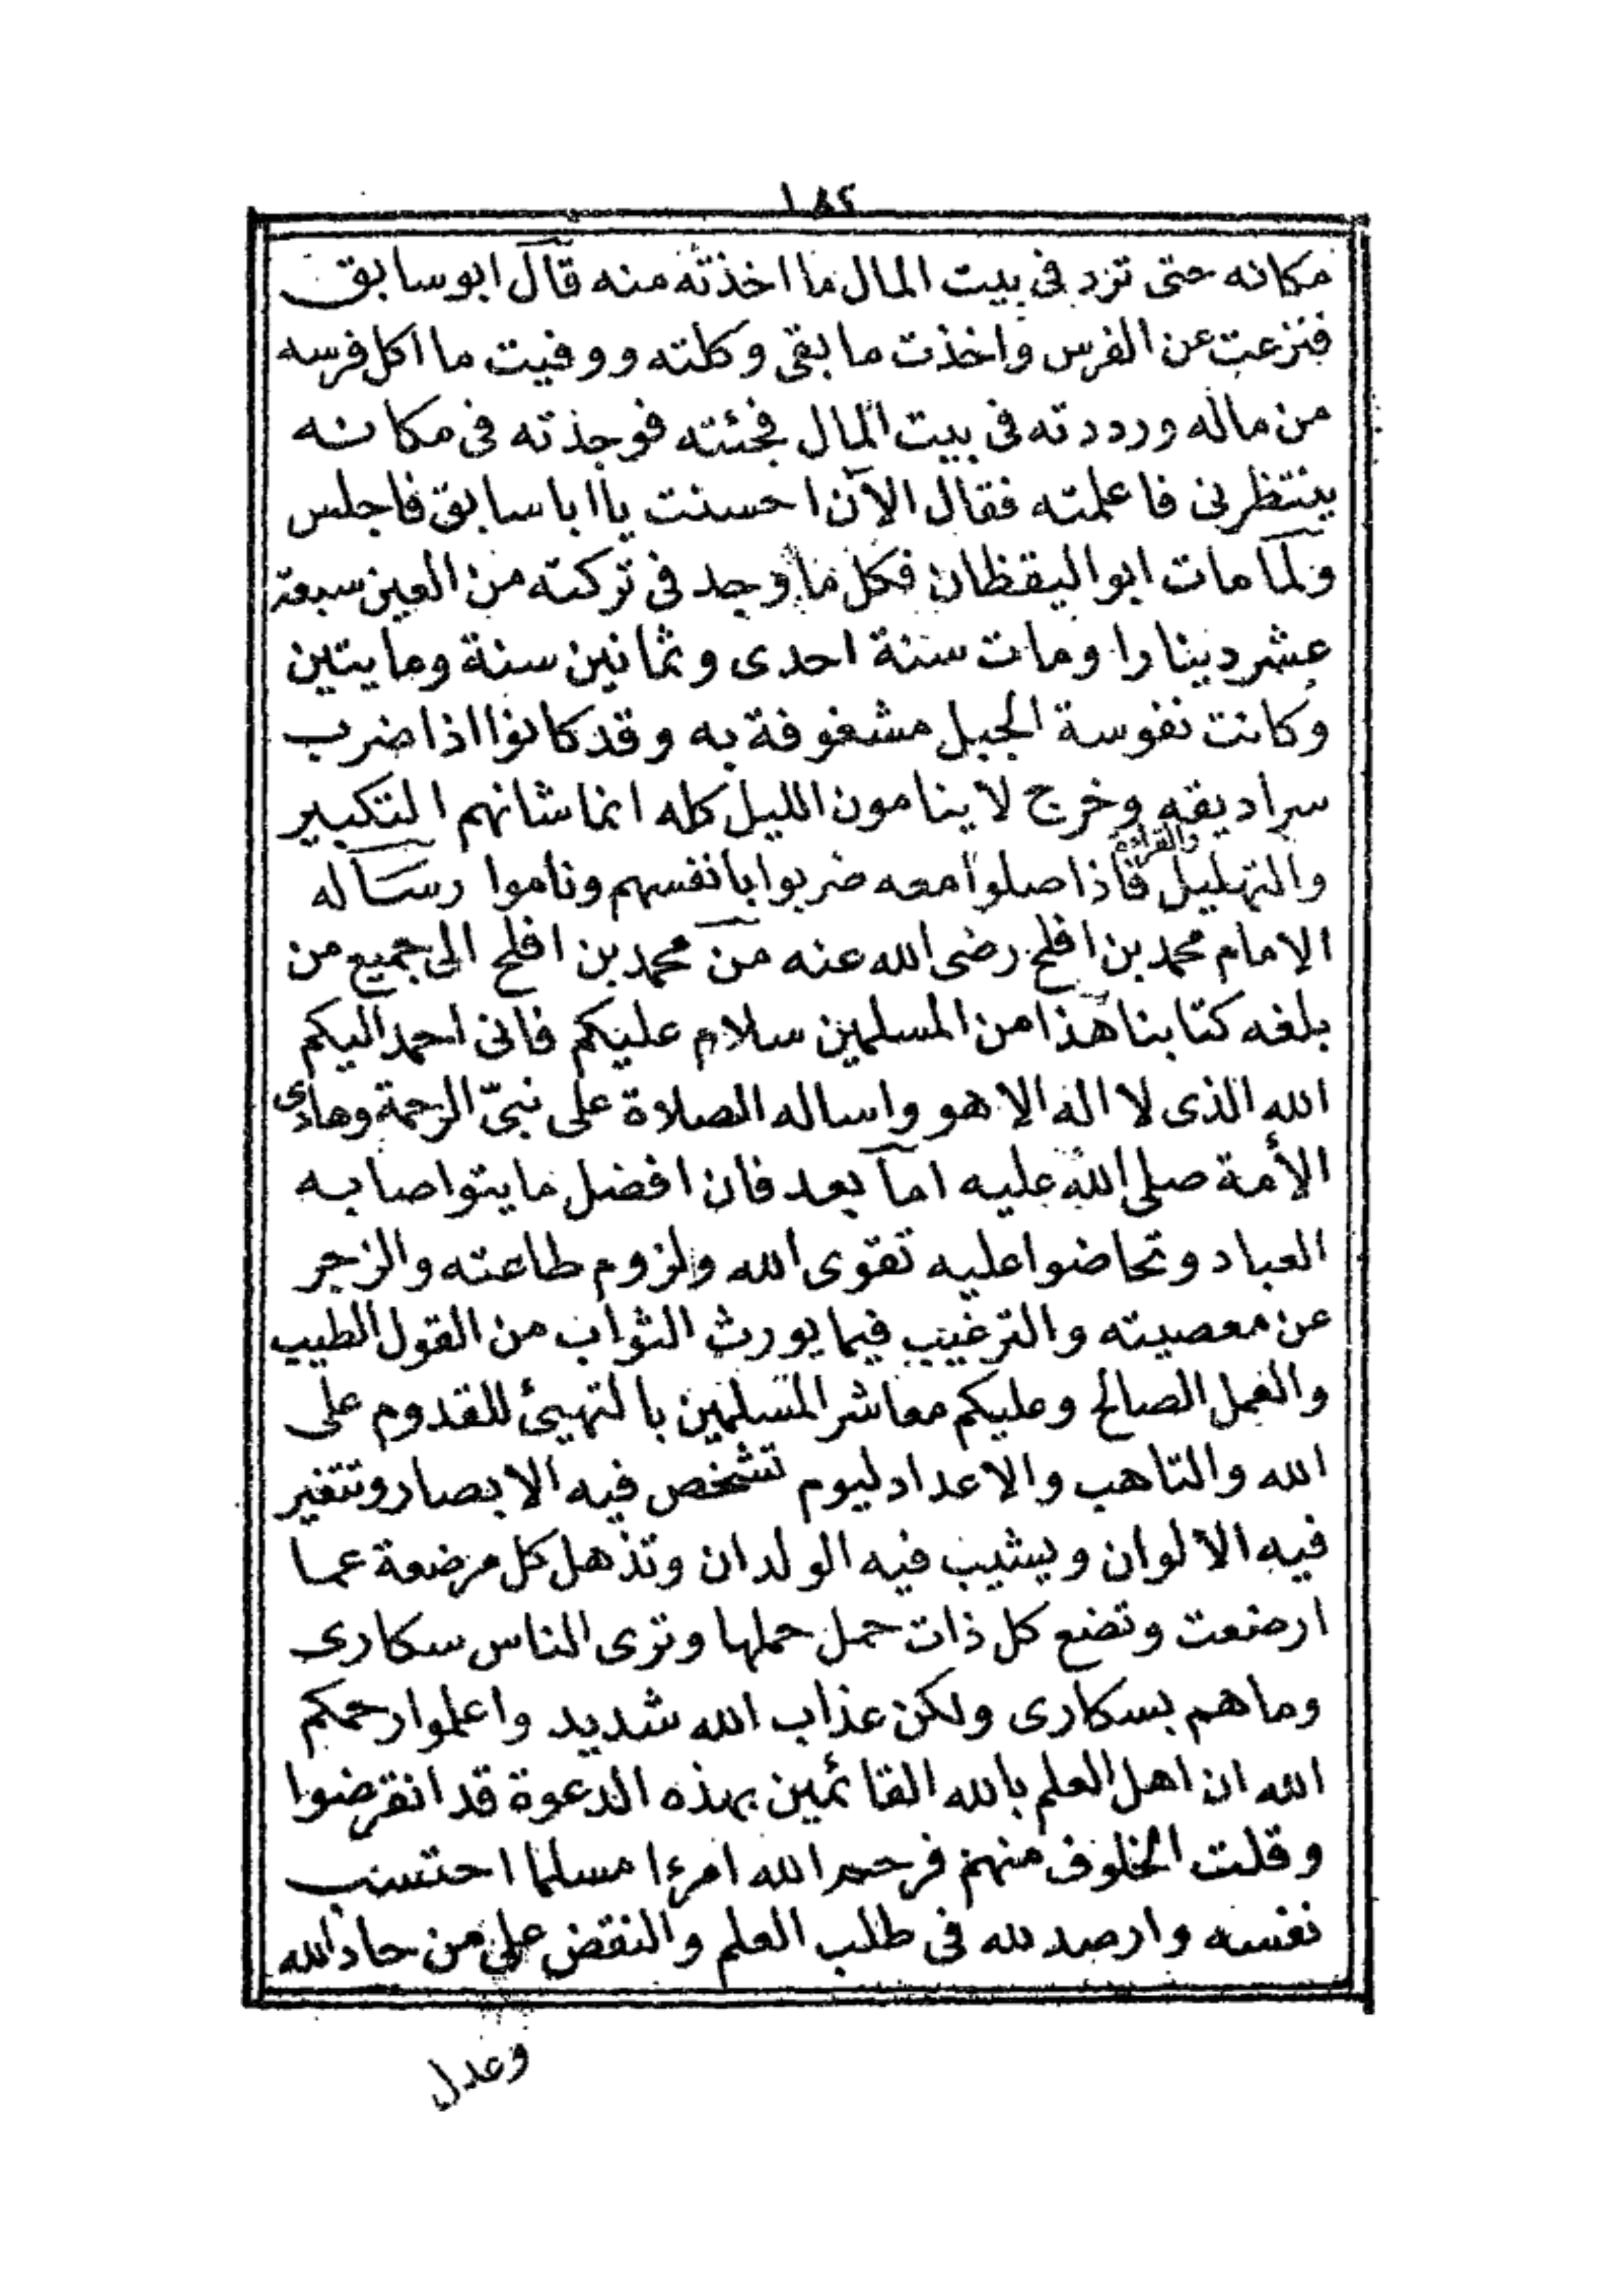 ١٨٢
مكانه حتى ترد في بيت المال ما اخذته منه قال ابو سابق
فنزعت عن الفرس واخذت ما بقى وكلته ووفيت ما اكل فرسه
من ماله ورددته في بيت المال فجئته فوجدته في مكانه
ينتظرنى فاعلمته فقال الآن احسنت يا ابا سابق فاجلس
ولما مات ابو اليقظان فكل ما وجد في تركته من العين سبعة
عشر دينارا ومات سنة احدى وثمانين سنة ومايتين
وكانت نفوسة الجبل مشغوفة به وقد كانوا اذا ضرب
سراديقه وخرج لا ينامون الليل كله انما شانهم التكبير
والتهليل والقراءة فاذا صلوا معه ضربوا بانفسهم وناموا رساله
الامام محمد بن افلح رضى الله عنه من محمد بن افلح الى جميع من
بلغه كتابنا هذا من المسلمين سلام عليكم فانى احمد اليكم
الله الذى لا اله الا هو واساله الصلاة على نبىّ الرحمة وهادى
الأمة صلى الله عليه اما بعد فان افضل ما يتواصا به
العباد وتحاضوا عليه تقوى الله ولزوم طاعته والزجر
عن معصيته والترغيب فيما يورث الثواب من القول الطيب
والعمل الصالح وعليكم معاشر المسلمين بالتهيئ للقدوم على
الله والتاهب والاعداد ليوم تشخص فيه الابصار وتتغير
فيه الألوان ويشيب فيه الولدان وتذهل كل مرضعة عما
ارضعت وتضع كل ذات حمل حملها وترى الناس سكارى
وما هم بسكارى ولكن عذاب الله شديد واعلموا رحمكم
الله ان اهل العلم بالله القائمين بهذه الدعوة قد انقرضوا
وقلت الخلوف منهم فرحم الله امرءا مسلما احتسب
نفسه وارصد لله في طلب العلم والنقض على من حاد الله
وعدل